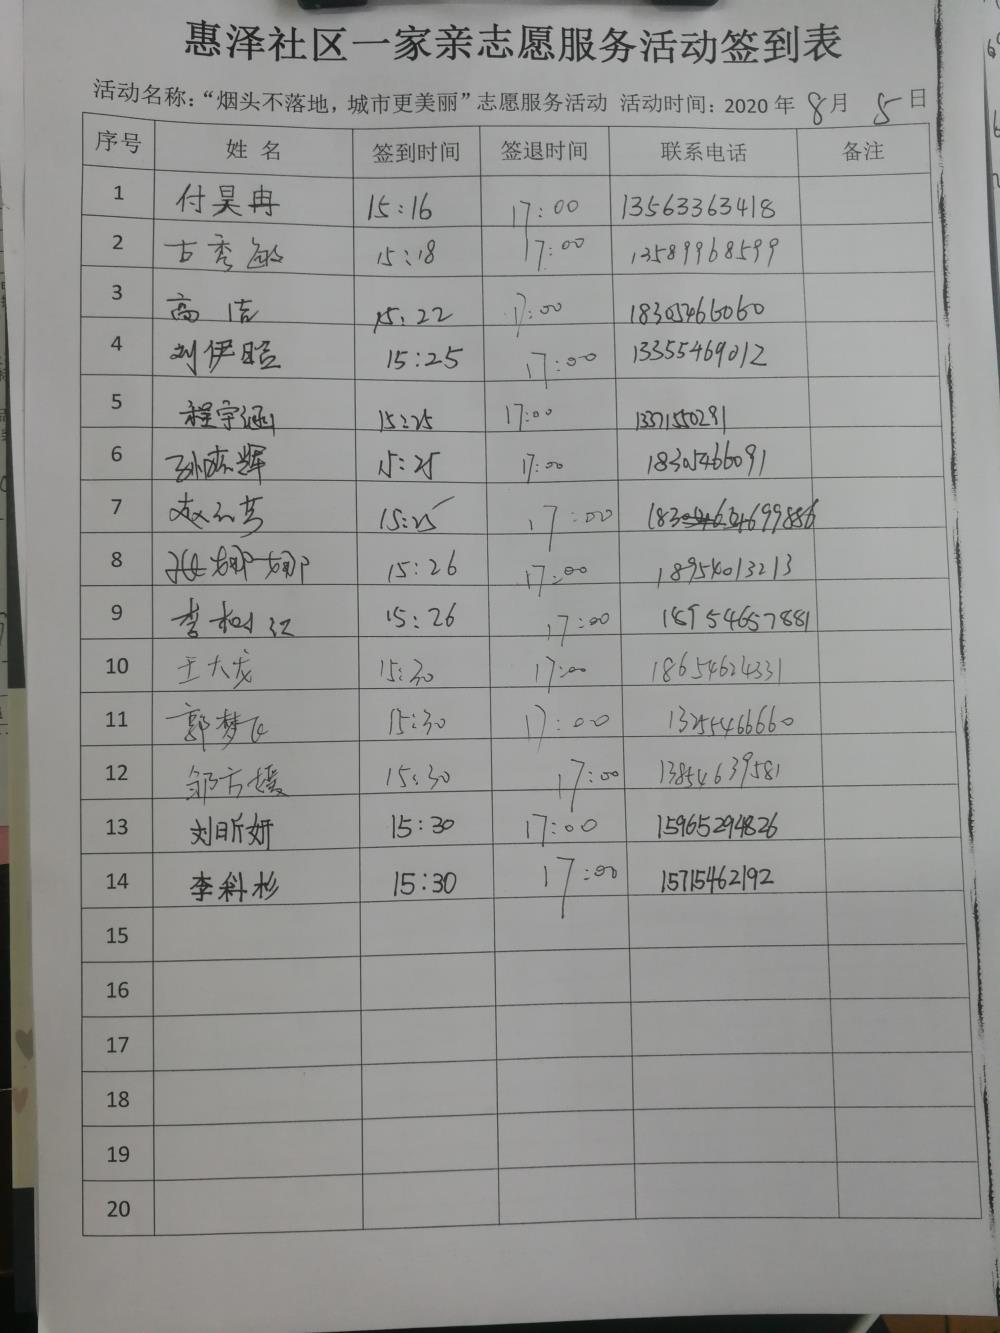 惠泽社区一家亲志愿服务活动签到表
活动名称：“烟头不落地，城市更美丽”志愿服务活动 活动时间：2020 年 8 月 5 日
序号 姓 名 签到时间 签退时间 联系电话 备注
1 付昊冉 15:16 17:00 13563363418
2 古秀敏 15:18 17:00 13589968599
3 高洁 15:22 17:00 18305466060
4 刘伊晗 15:25 17:00 13355469012
5 程宇涵 15:25 17:00 13371550291
6 15:25 17:00 18305466091
7 15:25 17:00
8 张娜娜 15:26 17:00 18954013213
9 李树红 15:26 17:00 18954657881
10 王大龙 15:30 17:00 18654624331
11 郭梦飞 15:30 17:00 13255466660
12 邹方媛 15:30 17:00 13854639581
13 刘昕妍 15:30 17:00 15965294826
14 李科杉 15:30 17:00 15715462192
15
16
17
18
19
20